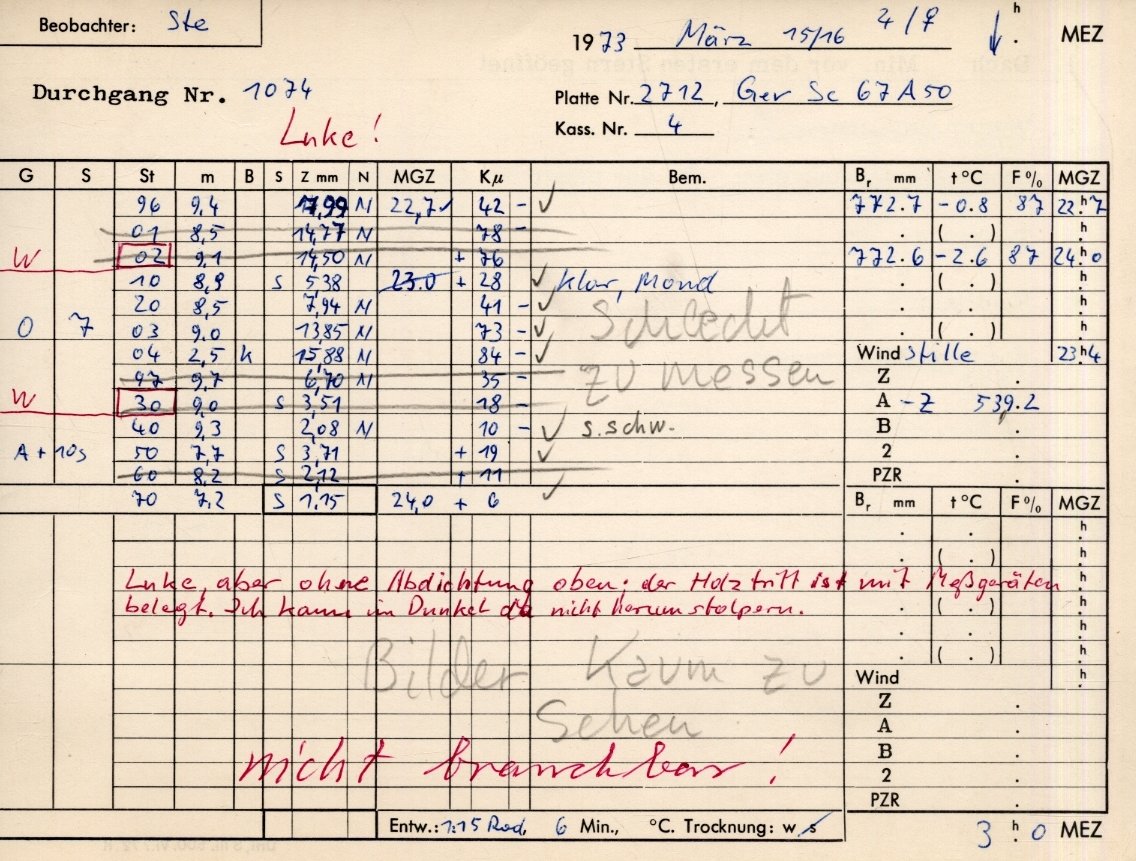 Beobachter: Ste
1973 März 15/16 4/♀ ↓ h . MEZ
Durchgang Nr. 1074
Platte Nr. 2712, Ger Sc 67A50
Luke!
Kass. Nr. 4
G S St m B S Z mm N MGZ Kμ Bem. Br mm t °C F % MGZ
96 9,4 17,99 N 22,7 42 - ✓ 772.7 -0.8 87 22h7
01 8,5 14,77 N 78 - . ( . ) h
W 02 9,1 14,50 N + 76 772.6 -2.6 87 24h0
10 8,9 S 5,38 23.0 + 28 ✓ klar, Mond . ( . ) h
20 8,5 7,94 N 41 - ✓ Schlecht
O 7 03 9.0 13,85 N 73 - ✓ . ( . ) h
04 2,5 k 15,88 N 84 - ✓ Wind Stille 23h4
97 9,7 6,70 N 35 - zu messen Z .
W 30 9,0 S 3,51 18 - A - Z 539.2
40 9,3 2,08 N 10 - ✓ s.schw. B .
A + 10s 50 7,7 S 3,71 + 19 ✓ 2 .
60 8,2 S 2,12 + 11 PZR .
70 7,2 S 1,15 24,0 + 6 ✓ Br mm t °C F % MGZ
. h
. ( . ) h
Luke, aber ohne Abdichtung oben; der Holztritt ist mit Meßgeräten
belegt. Ich kann im Dunkel da nicht herumstolpern.
. ( . ) h
. h
Bilder kaum zu . ( . ) h
Wind h
Sehen
Z .
A .
nicht brauchbar!
B .
2 .
PZR .
Entw.: 1:15 Rod, 6 Min., °C. Trocknung: w s
3 h 0 MEZ